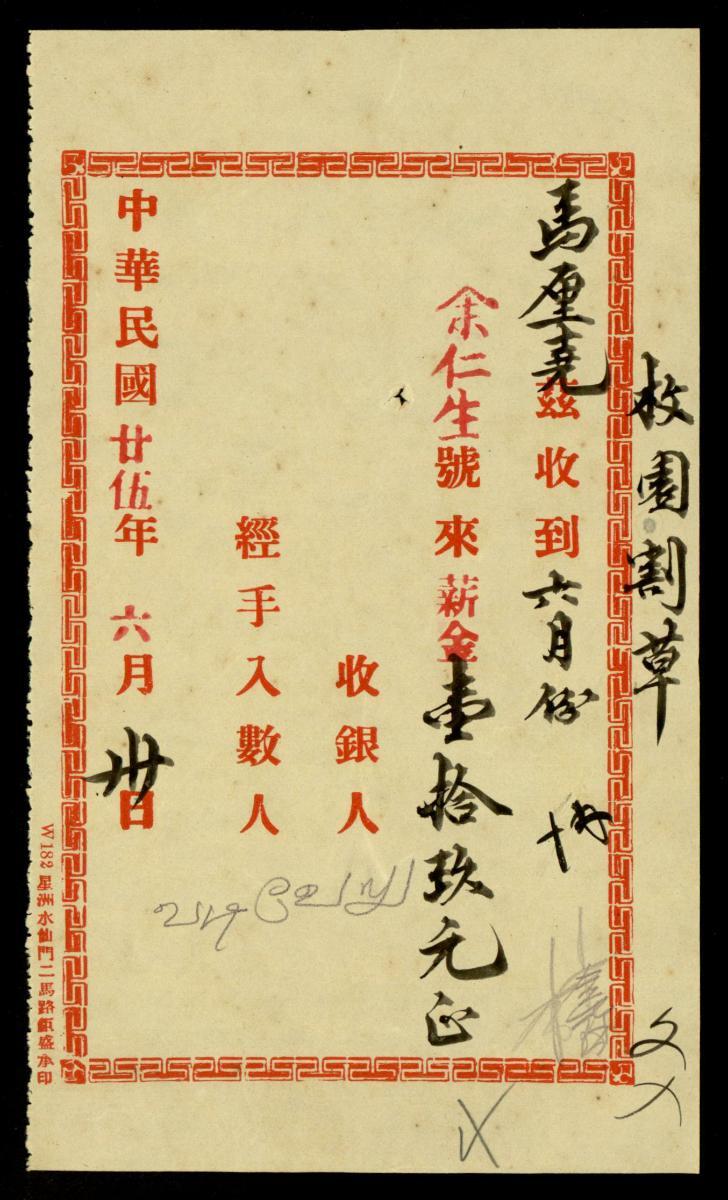 枚園割草
馬厘堯茲收到六月份
余仁生號來薪金壹拾玖元正
收銀人
經手入數人
中華民國廿伍年六月卅日
W182 星洲水仙門二馬路盛承印